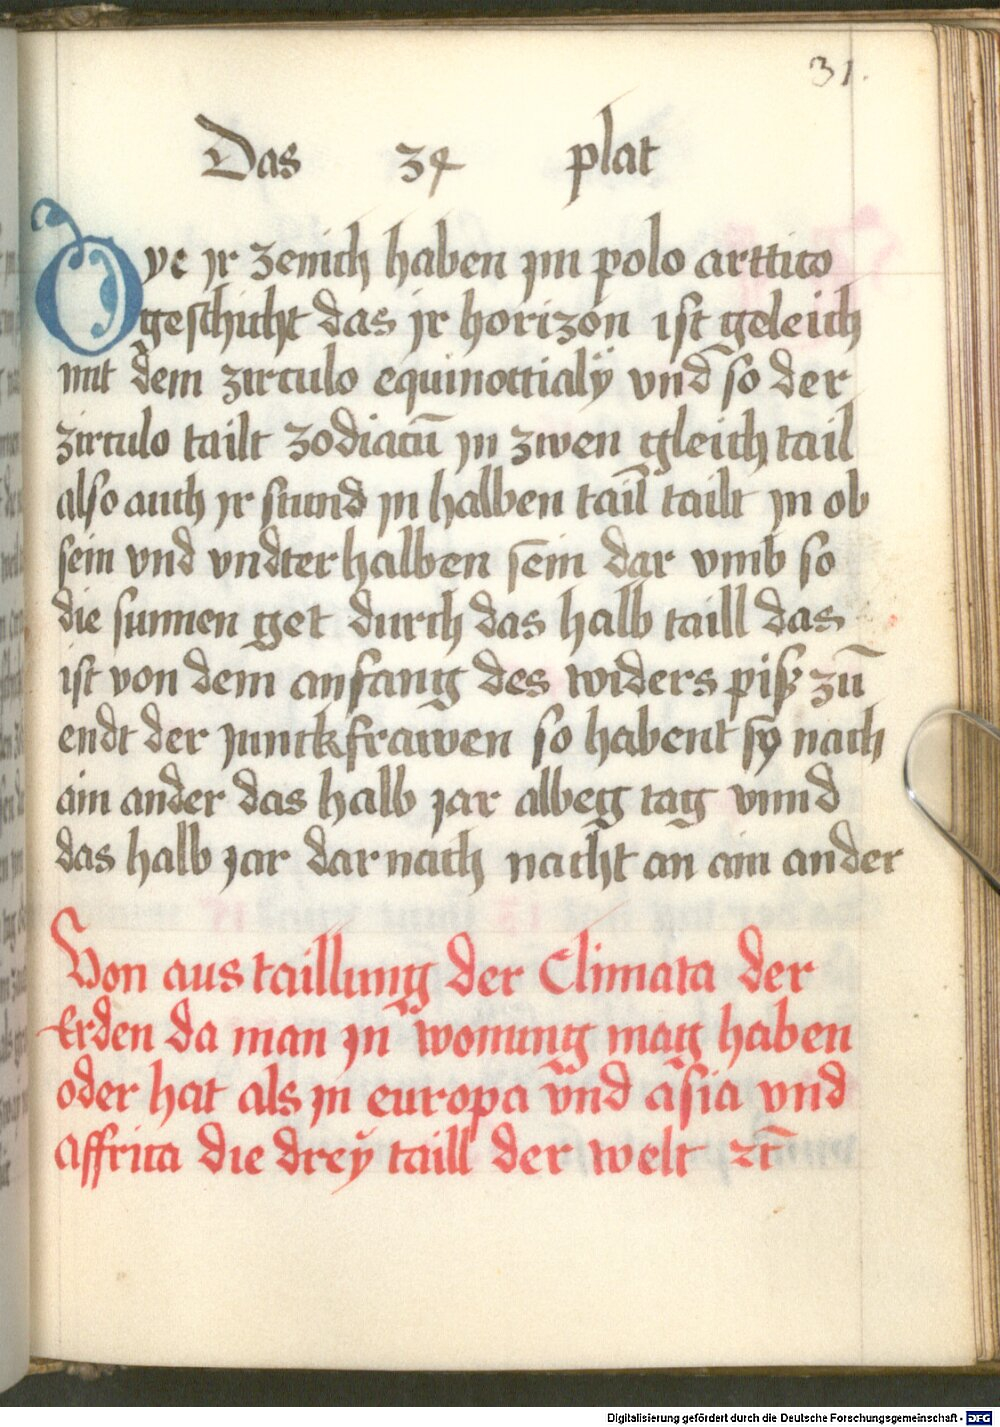 31.
Das 34 plat
Dye jr zenith haben jm polo arttico
geschicht das jr horizon ist geleich
mit dem zirculo equinoctialÿ vnd so der
zirculo tailt zodiacū jn zwen gleich tail
also auch jr stund jn halben tail tailt jn ob
sein vnd vndterhalben sein dar vmb so
die sunnen get durch das halb taill das
ist von dem anfang des widers piß zū
endt der junckfrawen so habent sy nach
ain ander das halb jar albeg tag vnnd
das halb jar darnach nacht an ain ander
Von austaillung der Climata der
Erden da man jn wonung mag haben
oder hat als jn europa vnd asia vnd
affrica die dreÿ taill der welt zc̄
Digitalisierung gefördert durch die Deutsche Forschungsgemeinschaft - DFG